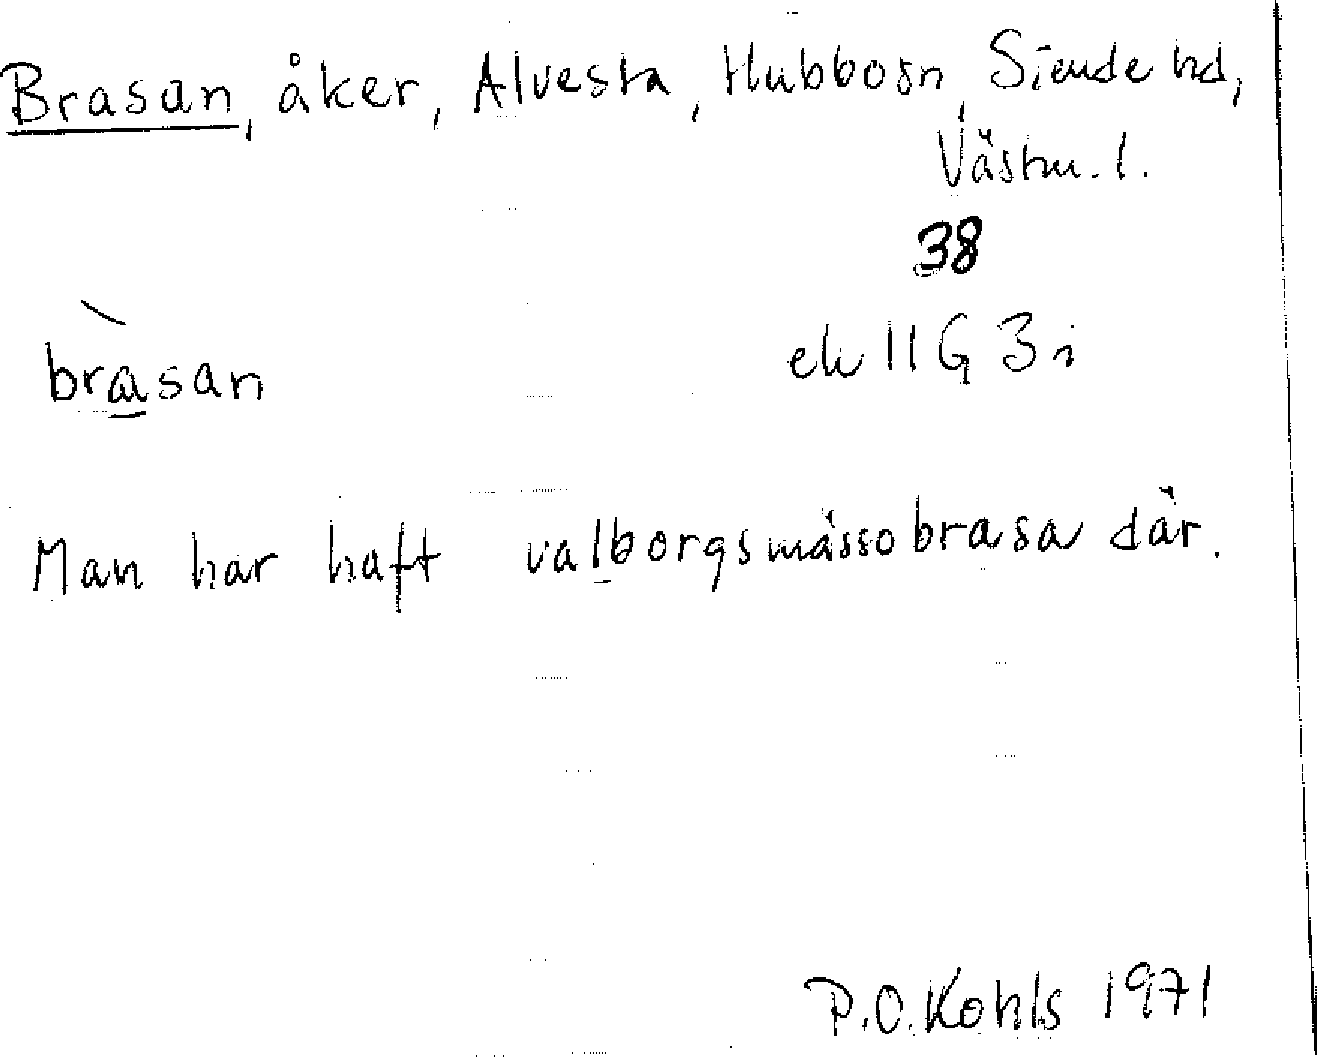 Brasan, åker, Alvesta, Hubbosn, Siende hd,
Västm. l.
38
ek 11 G 3 i
bràsan
Man har haft valborgsmässobrasa där.
P.O. Kohls 1971